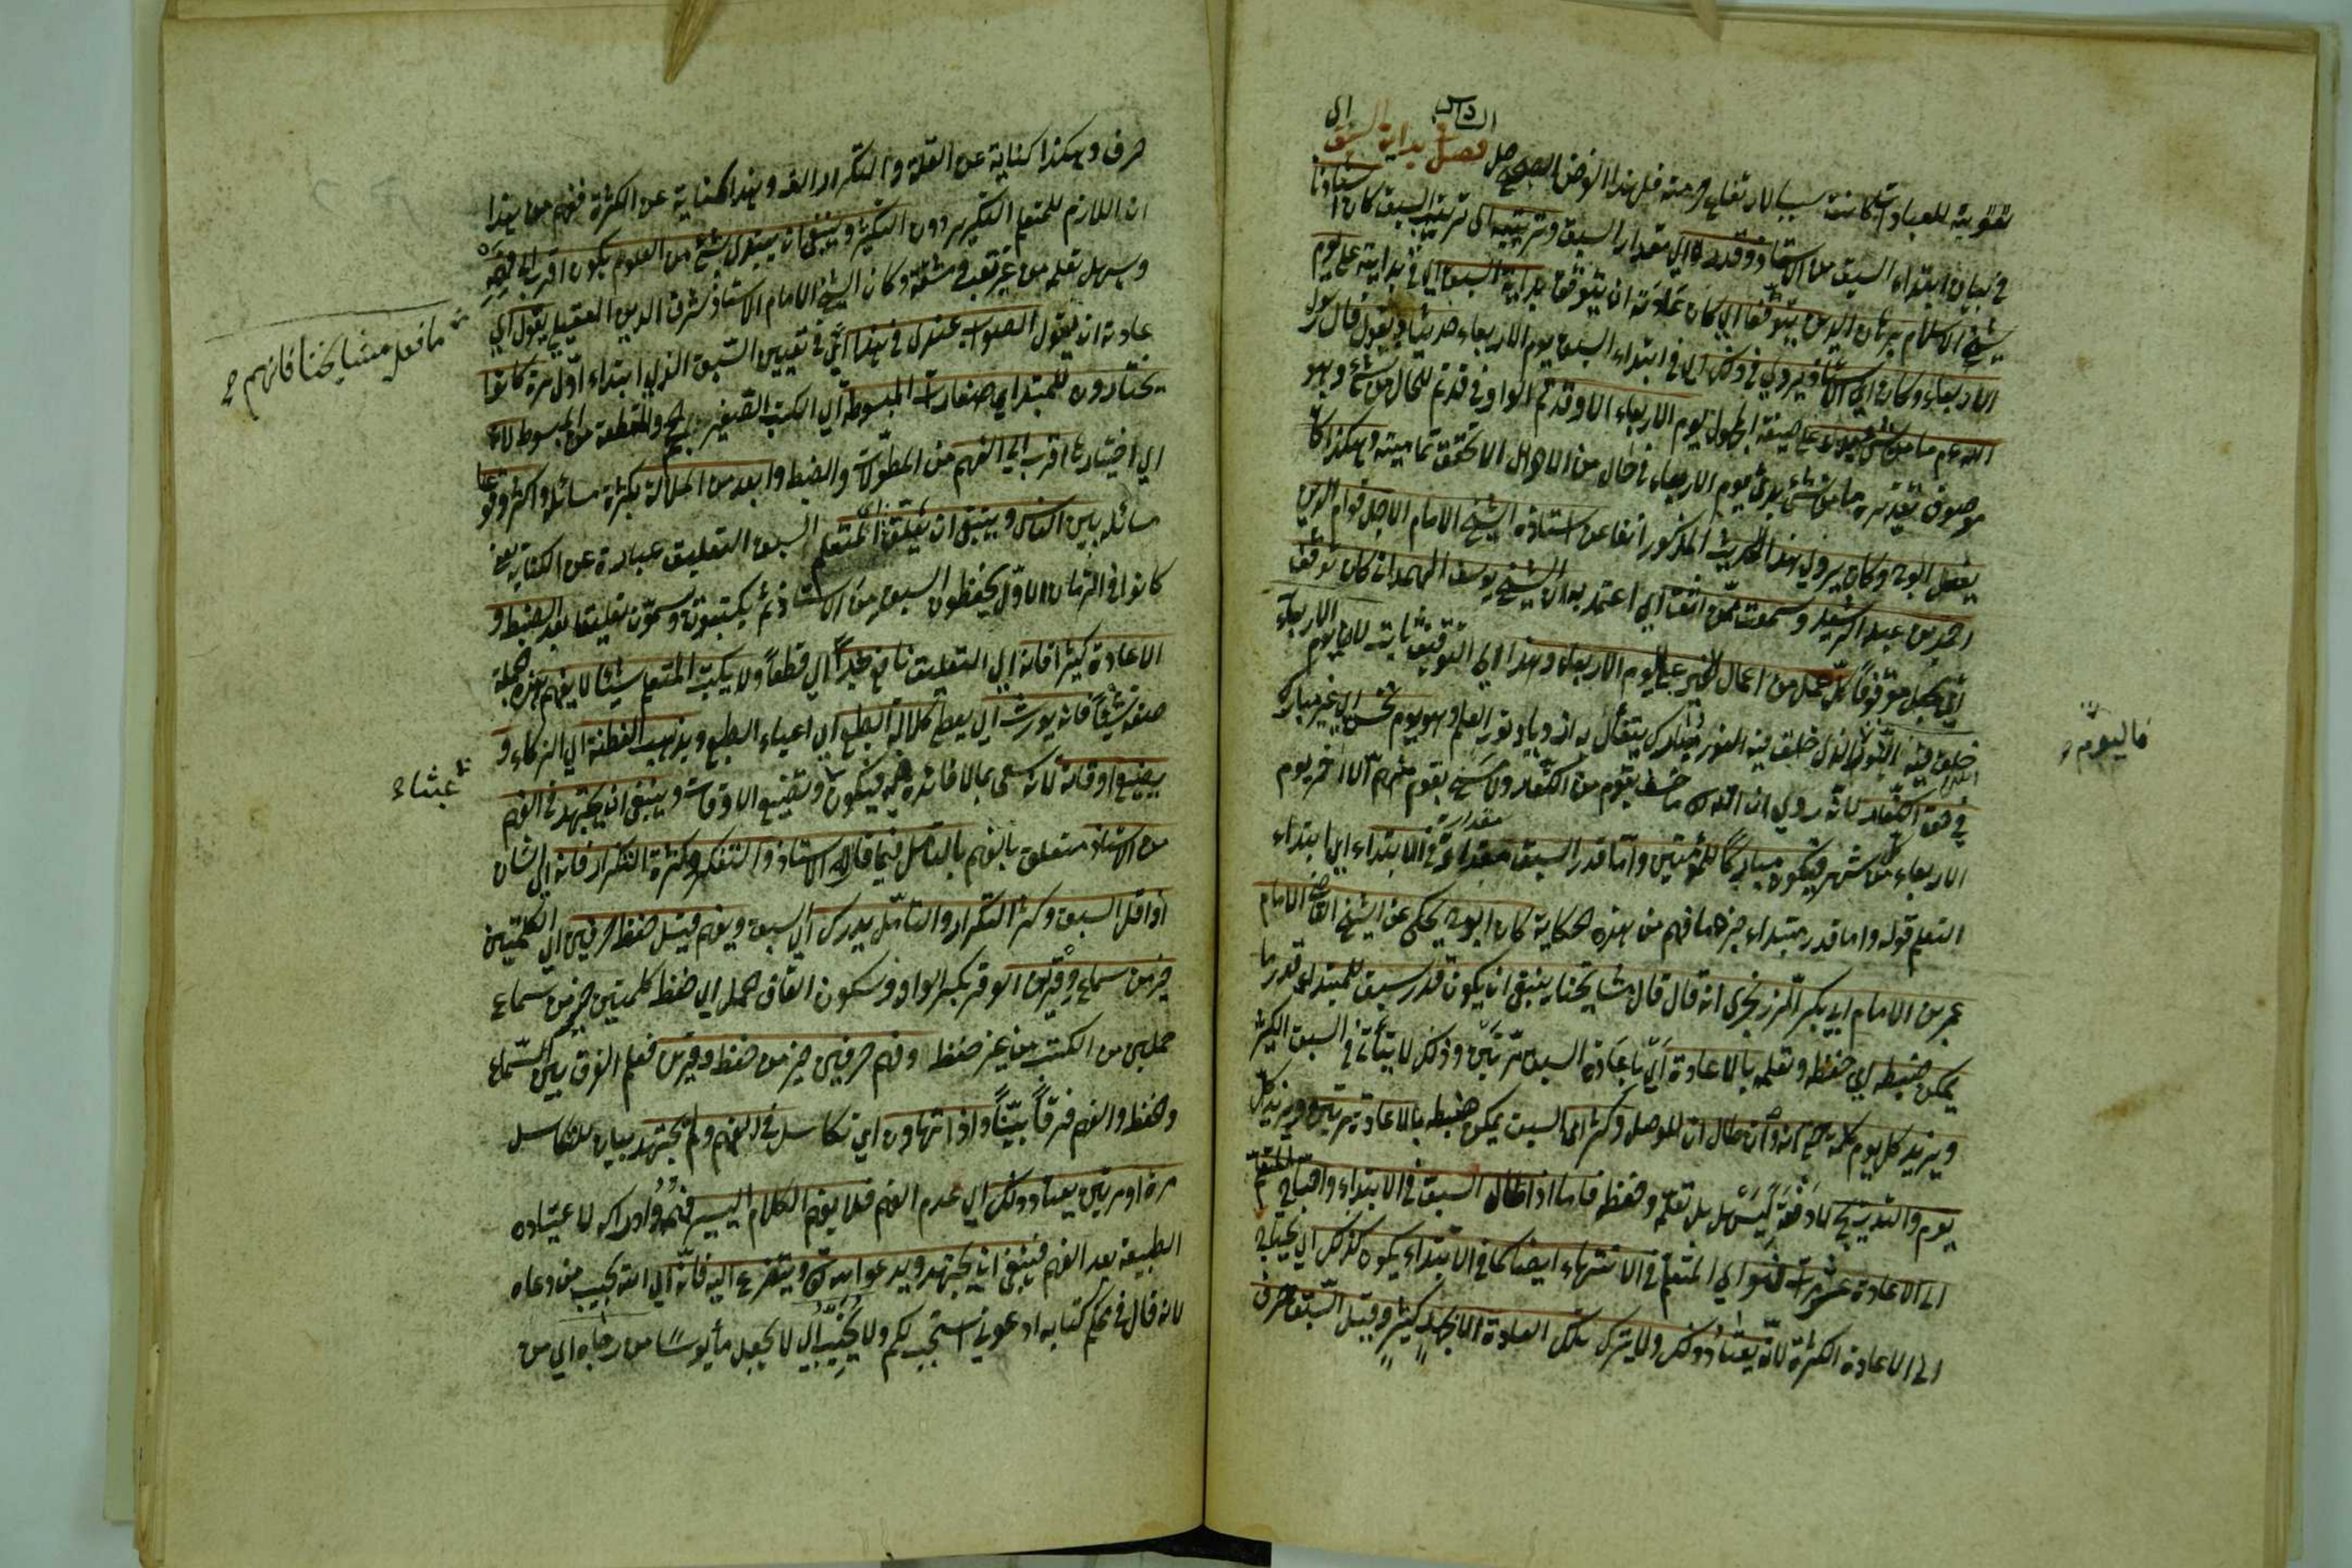 تقوية للعبادات كانت سببا لارتفاع حرمته فل هذا الوضن فصل بداية السبق اى
فى بيان ابتداء السبق من الاستاذ وقدره اى مقدار السبق وترتيبه اى ترتيب السبق كان استاذنا
شيخ الاسلام برهان الدين يتوقف اى كان عادته ان يتوقف بداية السبق اى فى بدايته على يوم
الاربعاء وكان اى الاستاذ يروى فى ذلك اى فى ابتداء السبق يوم الاربعاء حديثا ويقول قال رسول
الله عم ما من شئ بدئ على صيغة المجهول يوم الاربعاء الا وقد تم الواو فى قد تم للحال من شئ وهو
موصوف تقديره ما من شئ بدئ يوم الاربعاء فى حال من الاحوال الا تحقق تماميته وهكذا كان
يفعل ابوه وكان يروى هذا الحديث المذكور انفا عن استاذه الشيخ الامام الاجل قوام الدين
احمد بن عبد الرشيد وسمعت ممن اثق اى اعتمد به ان الشيخ يوسف الهمدانى كان توقف
اى يجعل موقوفا كل عمل من اعمال الخير على يوم الاربعاء وهذا اى التوقف ثابت لان يوم الاربعاء
خلق فيه النور الذى خلق فيه النور مبارك يتفأل به ازدياد نور العلم وهو يوم نحس اى غير مبارك
فى حق الكفار لانه روى ان الله ما خسف بقوم من الكفار ولا مسخ بقوم منهم الا اخر يوم
الاربعاء من كل شهر فيكون مباركا للمؤمنين واما قدر السبق مقداره فى الابتداء اى ابتداء
التعلم قوله واما قدر مبتداء خبره ما فهم من هذه الحكاية كان ابوح يحكى عن الشيخ القاضى الامام
عمر بن الامام ابى بكر الزرنجرى انه قال قال مشايخنا ينبغى ان يكون قدر سبق للمبتدى قدر ما
يمكن ضبطه اى حفظه وتعلمه بالاعادة اى باعادة السبق مرتين وذلك لا يتأتى فى السبق الكثير
ويزيد كل يوم كلمة حتى انه وان طال ان للوصل وكثر اى السبق يمكن ضبطه بالاعادة مرتين ويزيد كل
يوم والتدريج لا دفعة ليسهل بل تعلمه وحفظه فاما اذا طال السبق فى الابتداء واحتاج المتعلم
الى الاعادة عشر مرات فهو اى المتعلم فى الانتهاء ايضا كما فى الابتداء يكون كذلك اى يحتاج
الى الاعادة الكثيرة لانه يعتاد ذلك ولا يترك تلك العادة الا بجهد كثير وقيل السبق حرف
فاليوم
حرف وهكذا كناية عن القلة والتكرار الف وهذا كناية عن الكثرة ففهم من هذا
ان اللازم للمتعلم التكرير دون التكثير وينبغى ان يبتدى بشئ من العلوم يكون اقرب الى فهمه
وسهل تعلمه من غير تعب ومشقة وكان الشيخ الامام الاستاذ شرف الدين العقيلى يقول اى
عادته ان يقول الصواب عندى فى هذا اى فى تعيين السبق الذى ابتداء اول مرة كانوا
يختارون للمبتدى صغارات المبسوطة اى الكتب الصغيرة والمقطعة من المبسوط لانه
اى اختياره اقرب الى الفهم من المطولات والضبط وابعد من الملالة بكثرة مسائله واكثر وقوعا
مسائله بين الناس وينبغى ان يعلق المتعلم السبق التعليق عبارة عن الكتابة يعنى
كانوا فى الزمان الاول يحفظون السبق من الاستاذ ثم يكتبونه وسمون تعليقا بعد الضبط و
الاعادة كثيرا فانه اى التعليق نافع جدا اى قطعا ولا يكتب المتعلم شيئا لا يفهم هذه جملة
صفة شيئا فانه يورث اى يعطى كلالة الطبع اى اعياء الطبع ويذهب الفطنة اى الذكاء و
يضيع اوقاته لانه سعى بما لا فائدة فيه فيكون وتضييع الاوقات وينبغى ان يجتهد فى الفهم
من الاستاذ متعلق بالفهم بالتأمل فيما قاله الاستاذ والتفكر وكثرة التكرار فانه اى الشان
اذا قل السبق وكثر التكرار والتأمل يدرك اى السبق ويفهم قيل حفظ حرفين اى الكلمتين
خير من سماع وقرين الوقر بكسر الواو وسكون القاف حمل اى حفظ كلمتين خير من سماع
حملين من الكتب من غير حفظ وفهم حرفين خير من حفظ وقرين فعلم الفرق بين السماع
وحفظ والفهم فرقا بينا واذا تهاون اى تكاسل فى الفهم ولم يجتهد بيان للتكاسل
مرة او مرتين يعتاد ذلك اى عدم الفهم فلا يفهم الكلام اليسير فهمه وادراكه لاعتياده
الطبيعة بعد الفهم فينبغى ان يجتهد ويدعو الله ويتضرع اليه فانه اى الله يجيب من دعاه
لانه قال فى محكم كتابه ادعونى استجب لكم ولا يخيب اى لا يجعل مأيوسا من رجاه اى من
ما فعل مشايخنا فانهم
عبثا